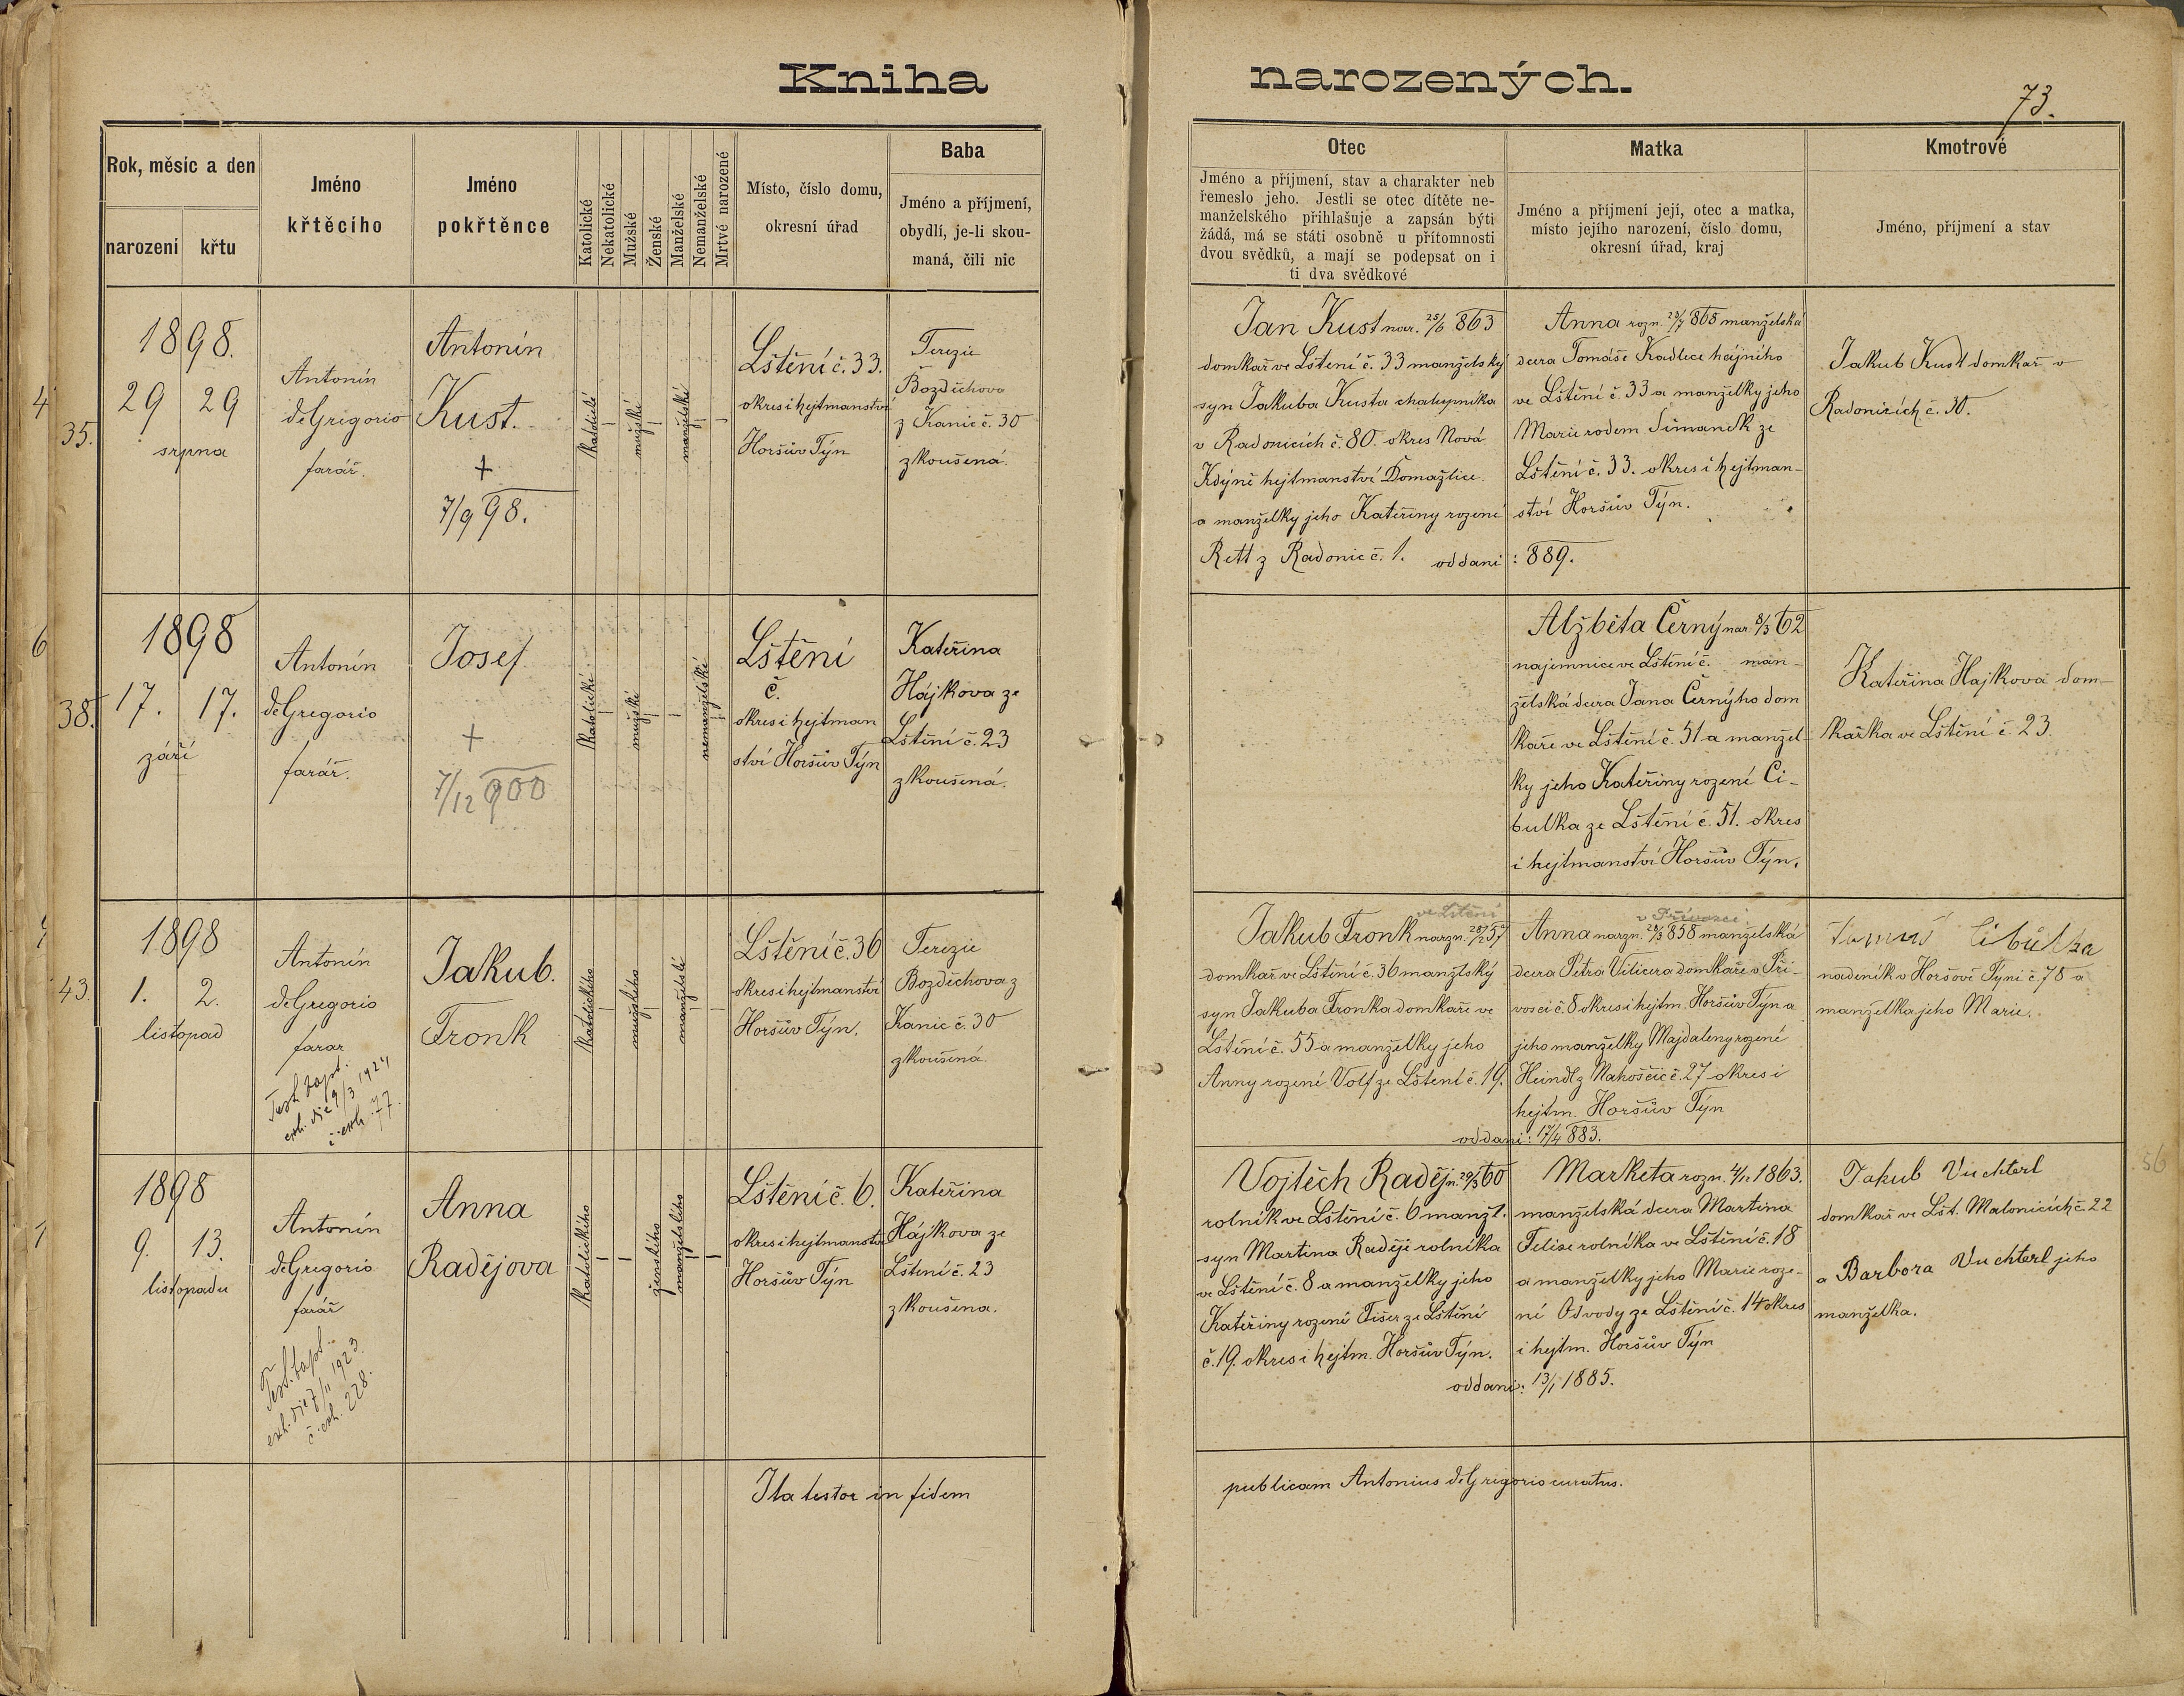 Kniha narozených.
73.
Rok, měsíc a den
narození
křtu
Jméno
křtěcího
Jméno
pokřtěnce
Katolické
Nekatolické
Mužské
Ženské
Manželské
Nemanželské
Mrtvé narozené
Místo, číslo domu,
okresní úřad
Baba
Jméno a příjmení,
obydlí, je-li skou-
maná, čili nic
Otec
Jméno a příjmení, stav a charakter neb
řemeslo jeho. Jestli se otec dítěte ne-
manželského přihlašuje a zapsán býti
žádá, má se státi osobně u přítomnosti
dvou svědků, a mají se podepsat on i
ti dva svědkové
Matka
Jméno a příjmení její, otec a matka,
místo jejího narození, číslo domu,
okresní úřad, kraj
Kmotrové
Jméno, příjmení a stav
4
35.
1898.
29 29
srpna
Antonín
deGregorio
farář.
Antonín
Kust.
+
7/9 98.
katolické
mužské
manželské
Lštění č. 33.
okres i hejtmanství
Horšův Týn
Terezie
Bozděchova
z Kanic č. 30
zkoušená.
Jan Kust nar. 25/6 863
domkář ve Lštení č. 33 manželský
syn Jakuba Kusta chalupníka
v Radonicích č. 80. okres Nová
Kdýně hejtmanství Domažlice
a manželky jeho Kateřiny rozené
Rett z Radonic č. 1. oddani : 889.
Anna rozn. 23/7 868 manželská
dcera Tomáše Kadlece hájního
ve Lštění č. 33 a manželky jeho
Marie rodem Šimandk ze
Lštění č. 33. okres i hejtman-
ství Horšův Týn.
Jakub Kust domkář v
Radonicích č. 30.
6
38.
1898
17. 17.
září
Antonín
deGregorio
farář.
Josef
+
7/12 900
katolické
mužské
nemanželské
Lštění
č.
okres i hejtman
ství Horšův Týn
Kateřina
Hájkova ze
Lštění č. 23
zkoušená.
Alžběta Černý nar. 8/3 62
najemnice ve Lštění č. man-
želská dcera Jana Černýho dom
káře ve Lštění č. 51 a manžel-
ky jeho Kateřiny rozené Ci-
bulka ze Lštění č. 51. okres
i hejtmanství Horšův Týn.
Kateřina Hajkova dom-
kářka ve Lštění č. 23.
43.
1898
1. 2.
listopad
Antonín
deGregorio
farar
Test. bapt.
exh. die 9/3 1924
č. exh. 77.
Jakub.
Fronk
katolického
mužského
manželské
Lštění č. 36
okres i hejtmanství
Horšův Týn.
Terezie
Bozděchova z
Kanic č. 30
zkoušená.
ve Lštění
Jakub Fronk narzn. 28/2 57
domkář ve Lštění č. 36 manžlský
syn Jakuba Fronka domkaře ve
Lštění č. 55 a manželky jeho
Anny rozené Volf ze Lštení č. 19.
v Přívozci
Anna narzn. 28/3 858 manželská
dcera Petra Vilicera domkaře v Pří-
vosci č. 8 okres i hejtm. Horšův Týn a
jeho manželky Majdaleny rozené
Heindl z Nahošcic č. 27 okres i
hejtm. Horšův Týn
oddani: 17/4 883.
Cibulka
nadeník v Horšově Týni č. 78 a
manželka jeho Marie.
1898
9. 13.
listopadu
Antonín
deGregorio
farář
Test. bapt.
exh. die 7/11 1923.
č. exh. 228.
Anna
Radějova
katolického
ženského
manželského
Lštění č. 6.
okres i hejtmanství
Horšův Týn
Kateřina
Hájkova ze
Lštení č. 23
zkoušena.
Vojtěch Raděj n. 20/3 60
rolník ve Lštění č. 6 manžl.
syn Martina Raděje rolníka
ve Lštění č. 8 a manželky jeho
Kateřiny rozené Tišer ze Lštění
č. 19. okres i hejtm. Horšův Týn.
Marketa rozn. 4/12 1863.
manželská dcera Martina
Felixe rolníka ve Lštění č. 18
a manželky jeho Marie roze-
né Odvody ze Lštění č. 14 okres
i hejtm. Horšův Týn
oddani: 13/1 1885.
Jakub Vuchterl
domkář ve Lšt. Malonicích č. 22
a Barbora Vuchterl jeho
manželka.
56
Ita testor in fidem publicam Antonius deGrigorio curatus.